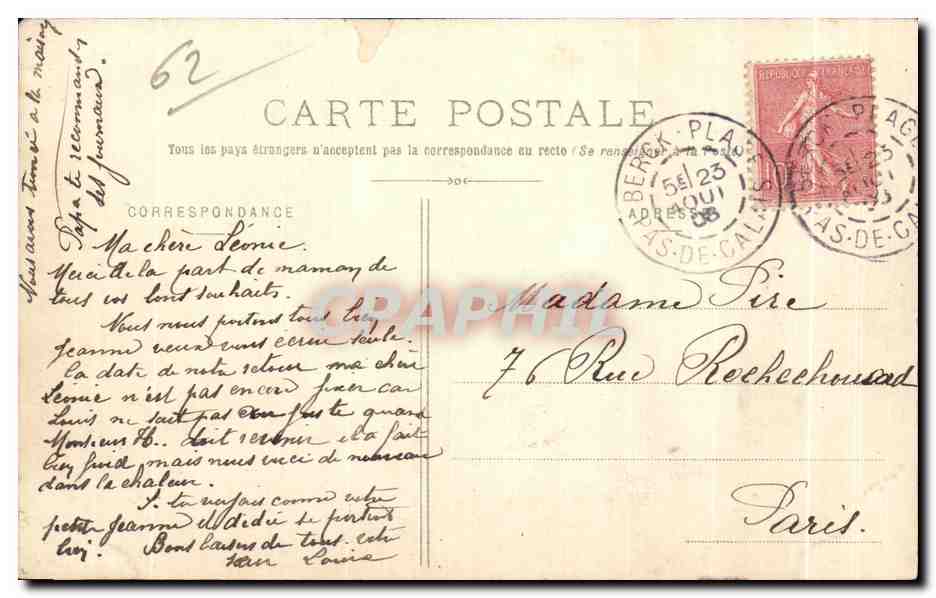 62
CARTE POSTALE
Tous les pays étrangers n'acceptent pas la correspondance au recto (Se renseigner à la Poste)
CORRESPONDANCE
ADRESSE
RÉPUBLIQUE FRANÇAISE
BERCK-PLAGE
5E 23
AOUT
08
PAS-DE-CALAIS
BERCK-PLAGE
5E 23
AOUT
PAS-DE-CALAIS
Nous avons à la maison
Papa te recommande
ses journaux.
Ma chère Léonie.
Merci de la part de maman de
tous vos bons souhaits.
Nous nous portons tous bien
Jeanne veux vous écrire seule.
La date de notre retour ma chère
Léonie n'est pas encore fixer car
Louis ne sait pas au juste quand
Monsieur H.. doit revenir il a fait
bien froid mais nous voici de nouveau
dans la chaleur.
Si tu voyais comme votre
petite Jeanne et dédié se portent
bien. Bons baisers de tous votre
sœur Louise
Madame Pire
76 Rue Rochechouard
Paris.
CPAPHIL